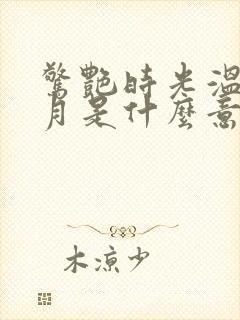 驚艷時光溫
月是什麼意
木涼少